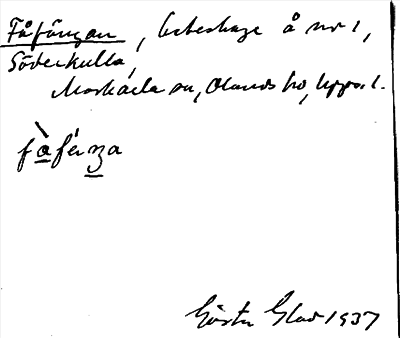 Fåfängan, beteshage å nr 1,
Söderkulla,
Morkarla sn, Olands hd, Upps. l.
fàfénza
Gösta Glad 1937